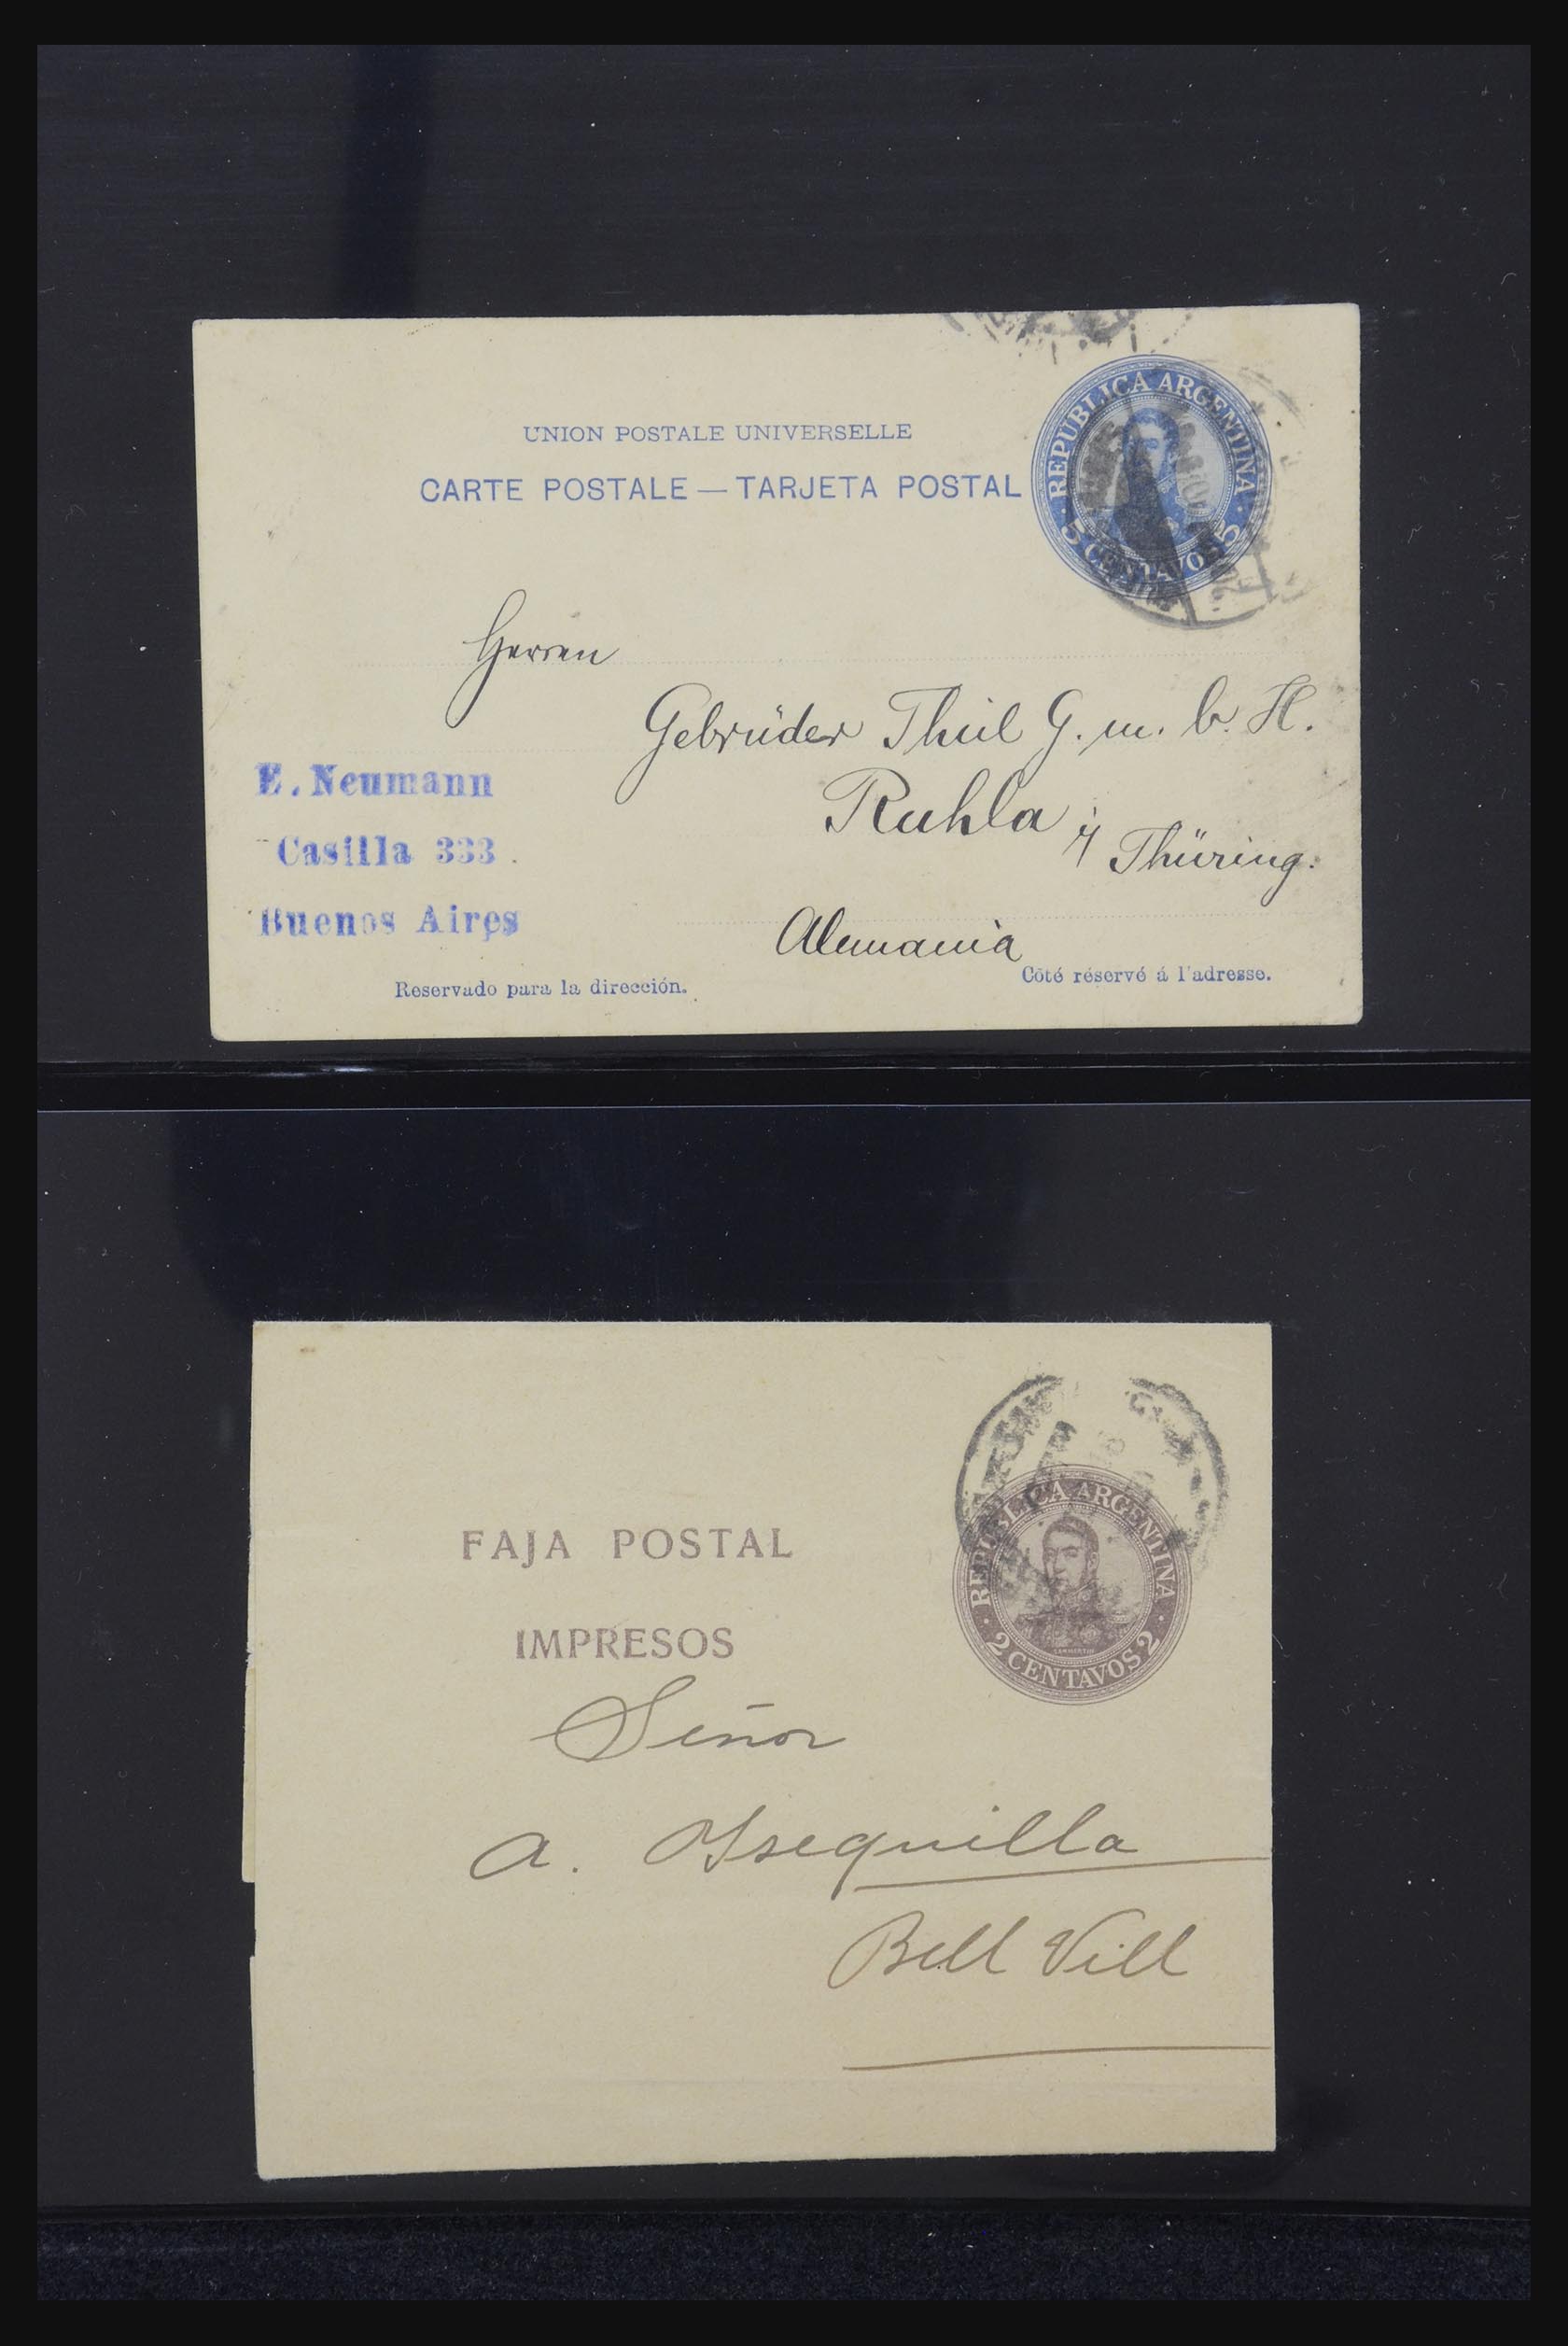 UNION POSTALE UNIVERSELLE
CARTE POSTALE — TARJETA POSTAL
REPUBLICA ARGENTINA
5 CENTAVOS 5
Herren
Gebrüder Thiel G. m. b. H.
Ruhla i/ Thüring.
Alemania
E. Neumann
Casilla 333
Buenos Aires
Reservado para la dirección.
Côté réservé á l'adresse.
REPUBLICA ARGENTINA
2 CENTAVOS 2
SAN MARTIN
FAJA POSTAL
IMPRESOS
Señor
A. Isequilla
Bell Vill